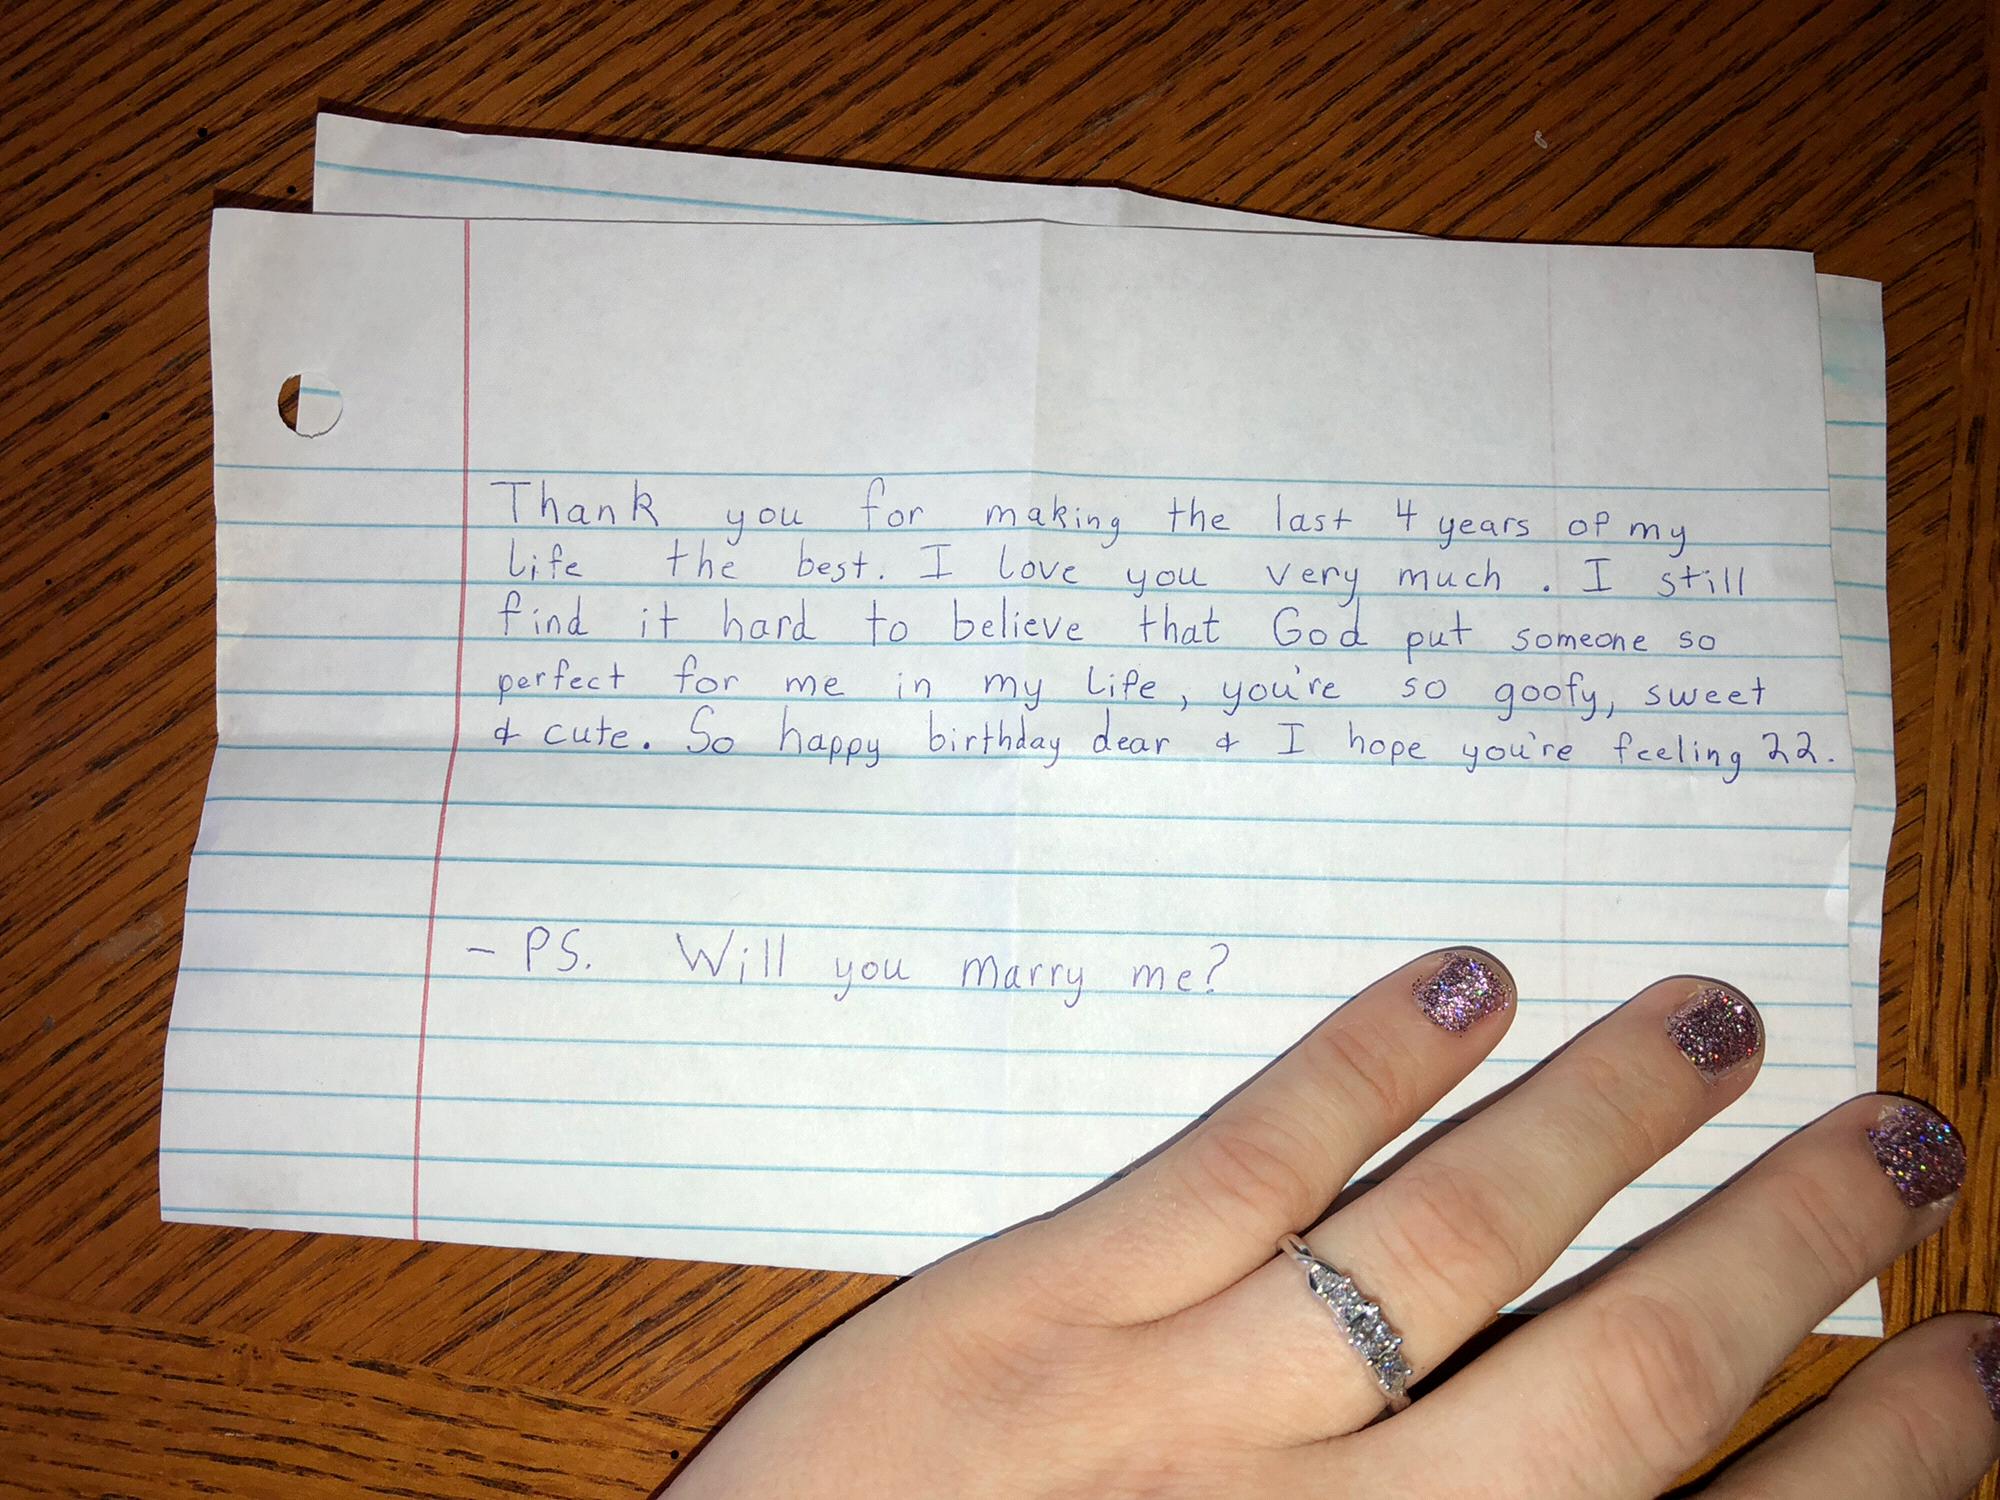 Thank you for making the last 4 years of my
life the best. I love you very much. I still
find it hard to believe that God put someone so
perfect for me in my life, you're so goofy, sweet
& cute. So happy birthday dear & I hope you're feeling 22.
- PS. Will you marry me?